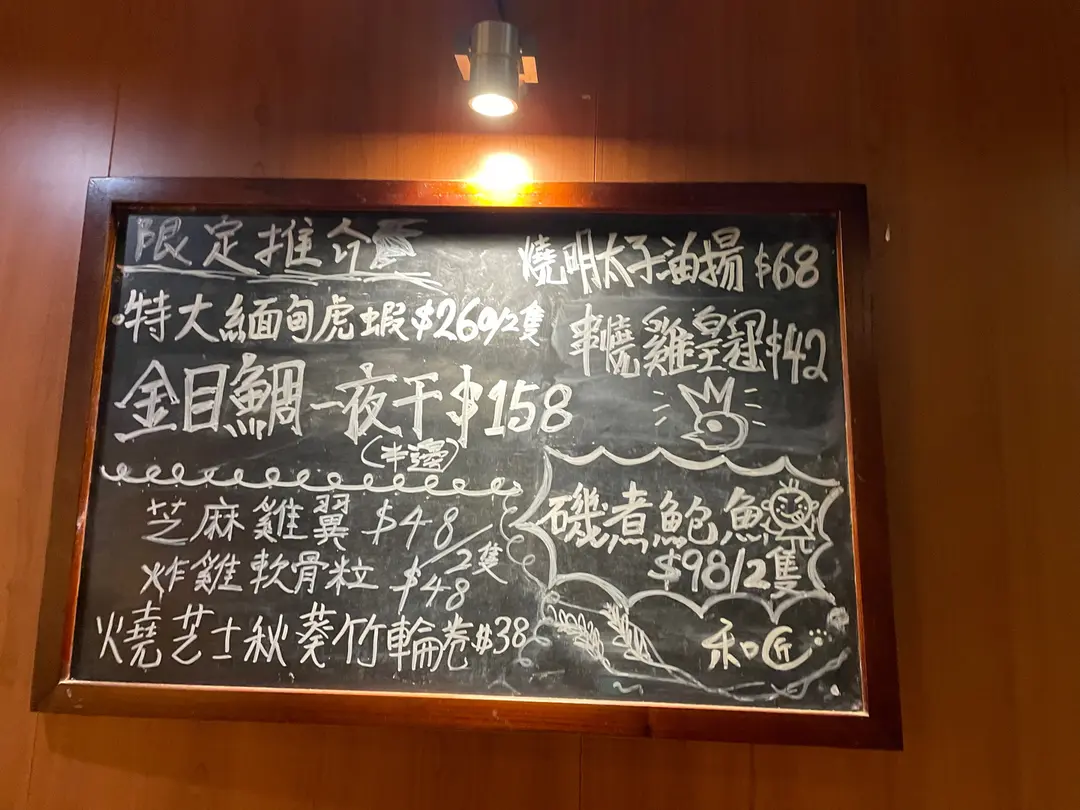 限定推介
特大緬甸虎蝦$260/2隻
金目鯛一夜干$158
(半邊)
芝麻雞翼 $48/2隻
炸雞軟骨粒 $48
燒芝士秋葵竹輪卷$38
燒明太子油揚 $68
串燒雞皇冠$42
磯煮鮑魚
$98/2隻
和匠